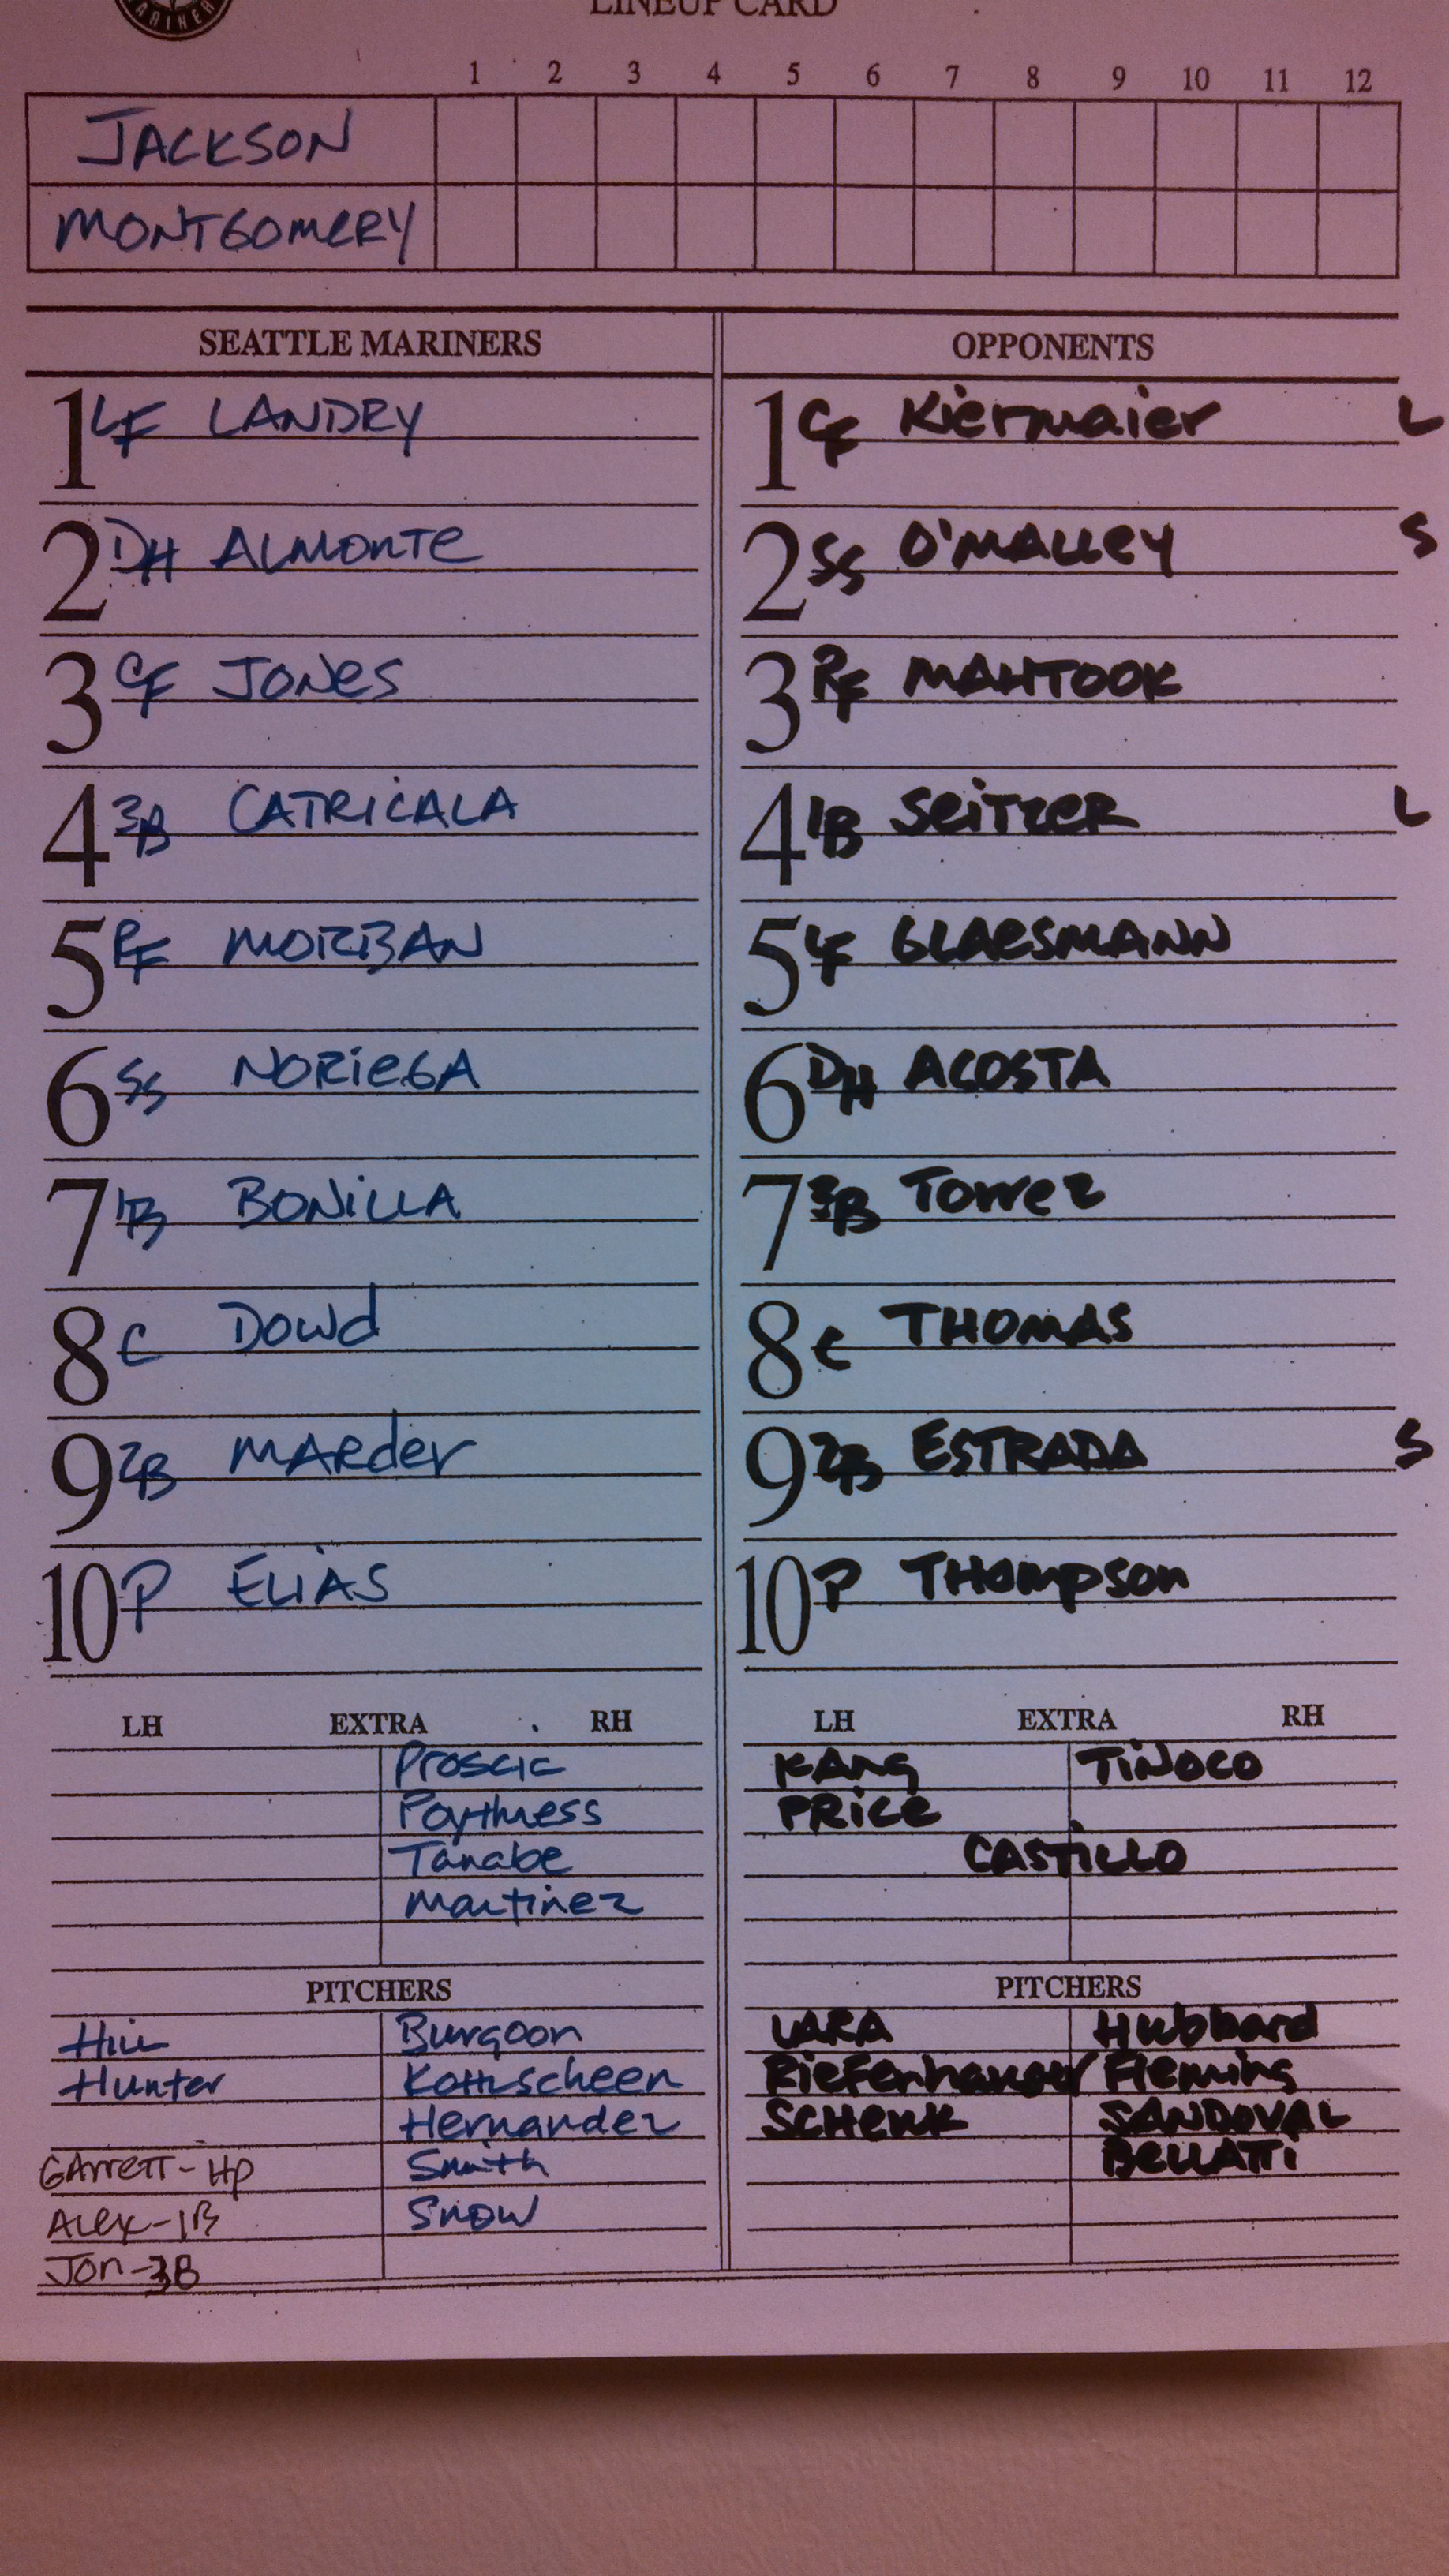 MARINERS
LINEUP CARD
1 2 3 4 5 6 7 8 9 10 11 12
JACKSON
MONTGOMERY
SEATTLE MARINERS
1 LF LANDRY
2 DH ALMONTE
3 CF JONES
4 3B CATRICALA
5 RF MORBAN
6 SS NORIEGA
7 1B BONILLA
8 C Dowd
9 2B MARder
10 P ELIAS
LH EXTRA RH
Proscia
Poythress
Tanabe
Martinez
PITCHERS
Hill Burgoon
Hunter Kohlscheen
Hernandez
GArrETT-HP Smith
ALex-1B Snow
Jon-3B
OPPONENTS
1 CF Kiermaier L
2 SS O'MALLEY S
3 RF MAHTOOK
4 1B SEITZER L
5 LF GLAESMANN
6 DH ACOSTA
7 3B Torrez
8 C THOMAS
9 2B ESTRADA S
10 P THompson
LH EXTRA RH
KANG TINOCO
PRICE
CASTILLO
PITCHERS
LARA Hubbard
Riefenhauser Fleming
SCHENK SANDOVAL
BELLATTI